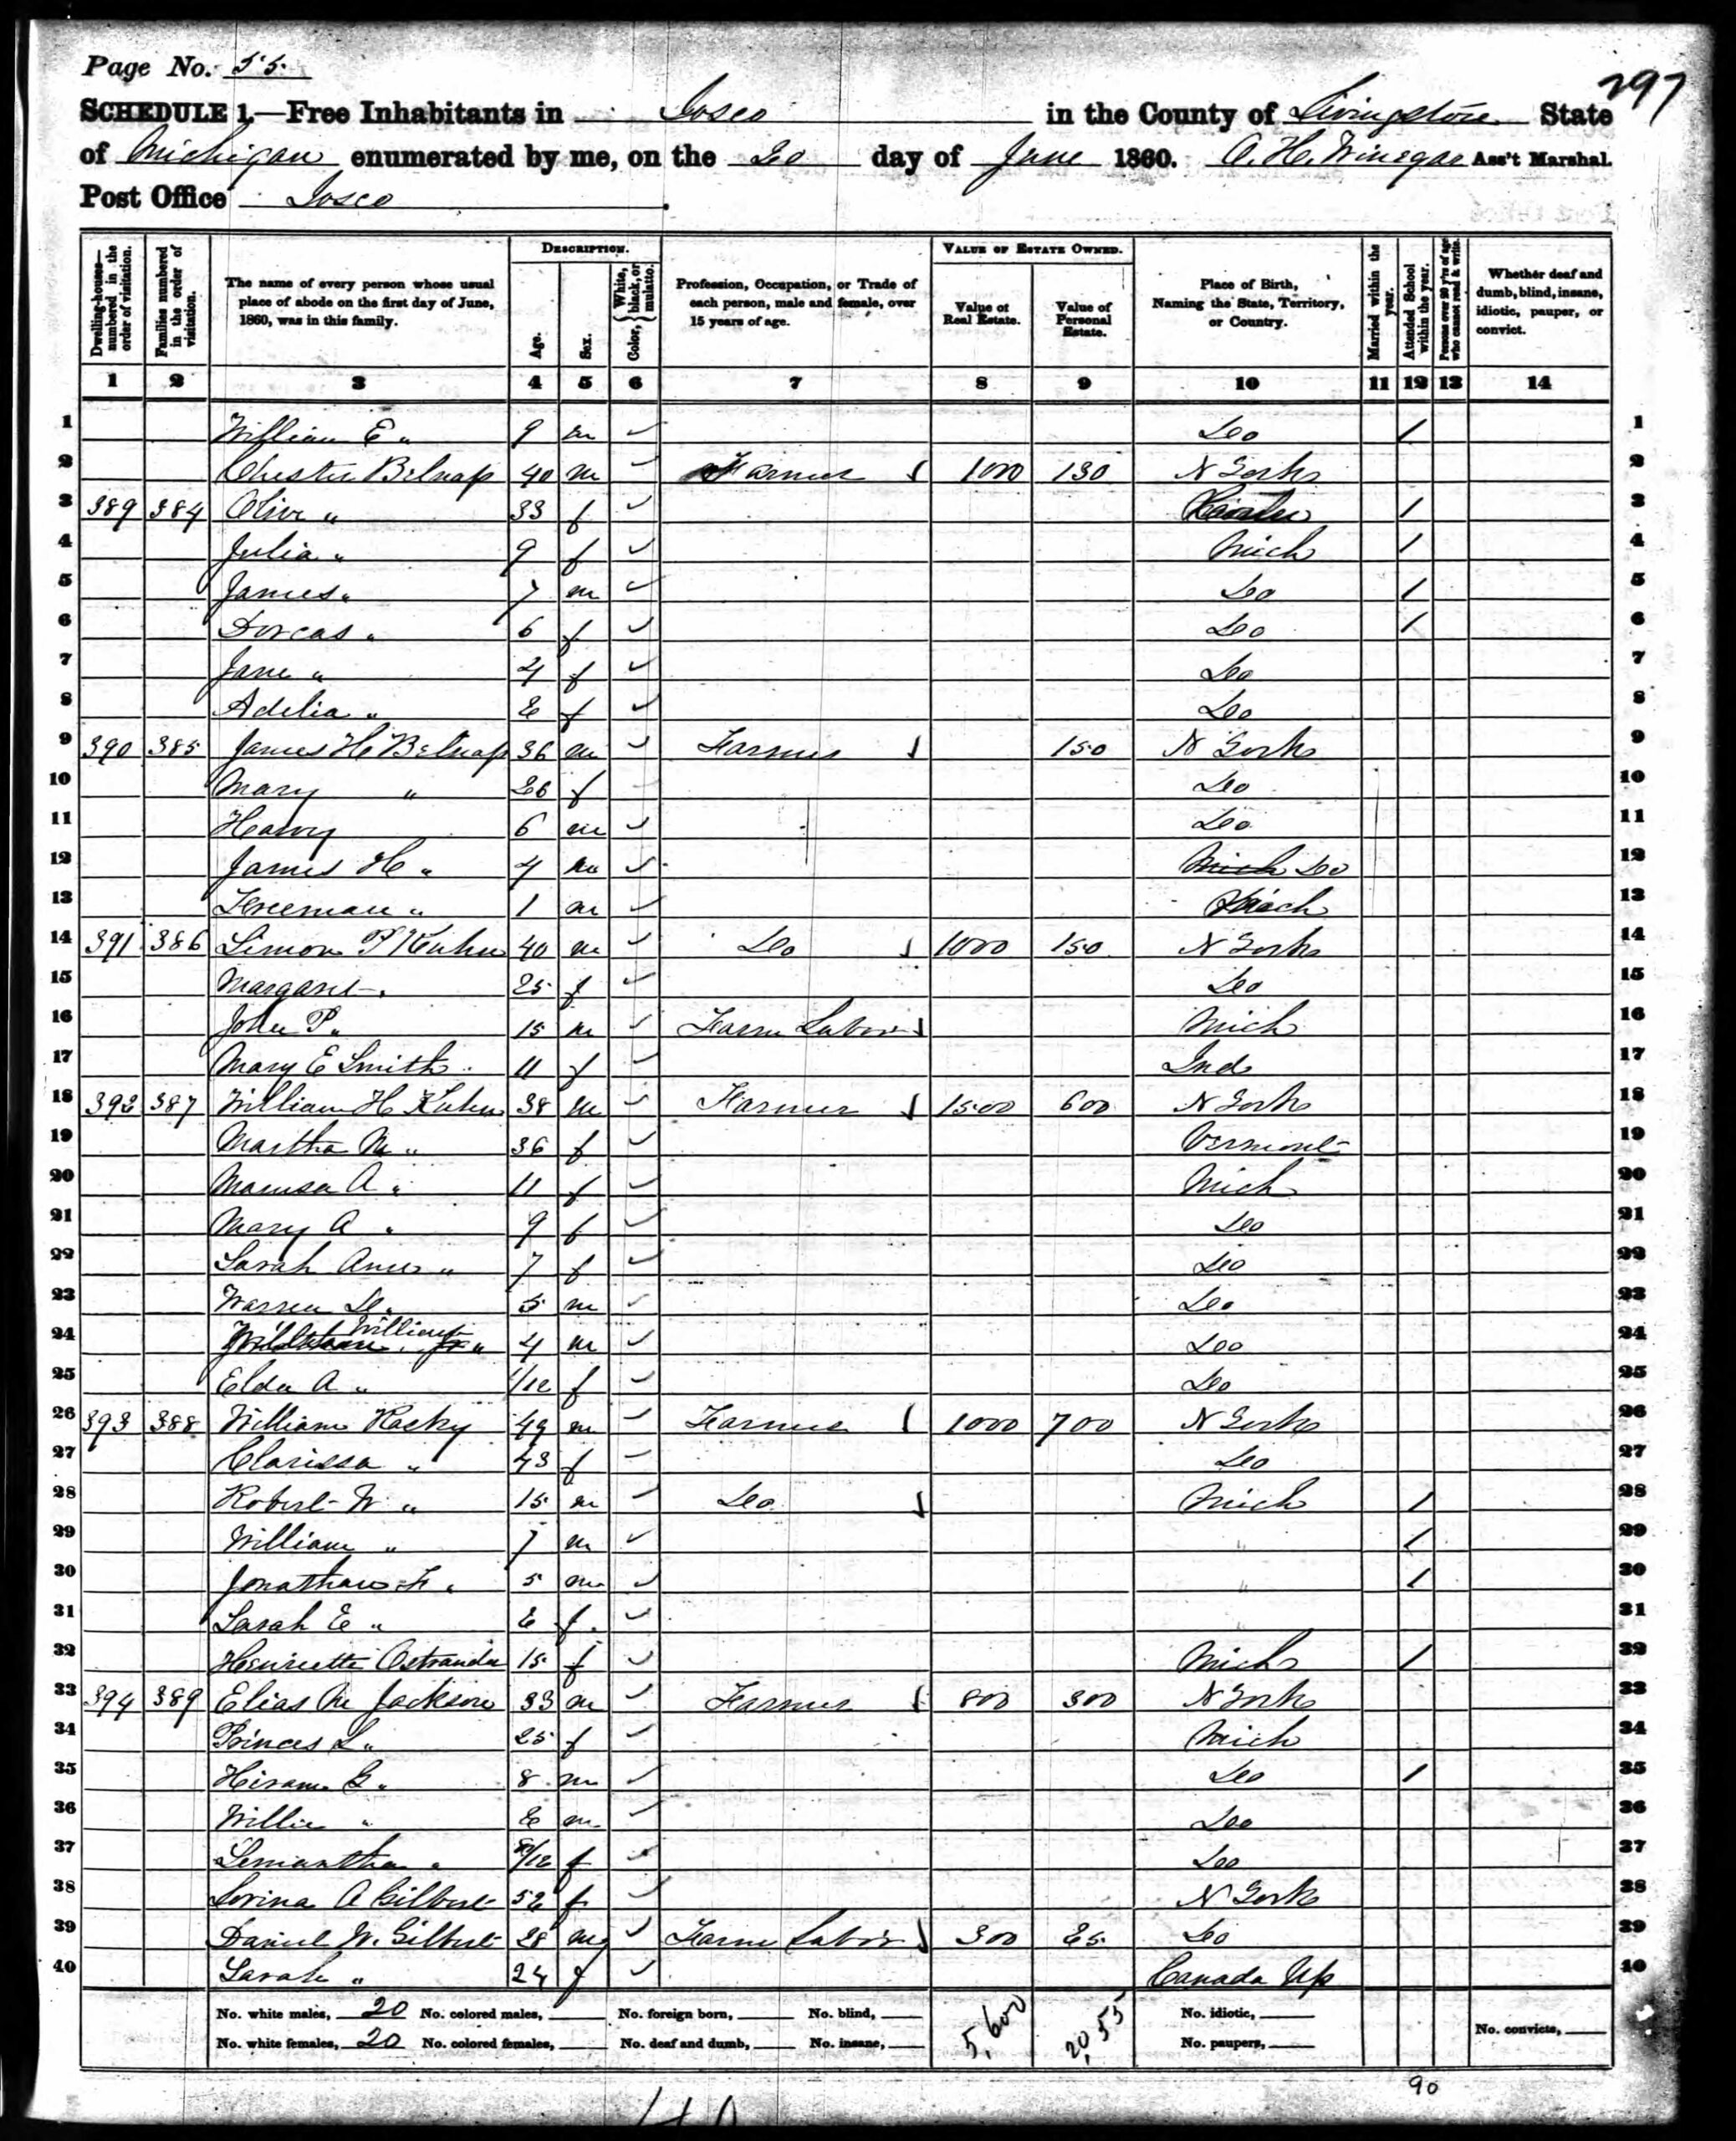 Page No. 55
297
SCHEDULE 1.—Free Inhabitants in Iosco in the County of Livingston State
of Michigan enumerated by me, on the 20 day of June 1860. A. H. Winegar Ass't Marshal.
Post Office Iosco.
DESCRIPTION. VALUE OF ESTATE OWNED.
Dwelling-houses—numbered in the order of visitation. Families numbered in the order of visitation. The name of every person whose usual place of abode on the first day of June, 1860, was in this family. Age. Sex. Color, {White, black, or mulatto. Profession, Occupation, or Trade of each person, male and female, over 15 years of age. Value of Real Estate. Value of Personal Estate. Place of Birth, Naming the State, Territory, or Country. Married within the year. Attended School within the year. Persons over 20 y'rs of age who cannot read & write. Whether deaf and dumb, blind, insane, idiotic, pauper, or convict.
1 2 3 4 5 6 7 8 9 10 11 12 13 14
1 William E " 9 m ✓ Do / 1
2 Chester Belnap 40 m ✓ Farmer 1000 130 N York 2
3 389 384 Olive " 33 f ✓ / 3
4 Julia " 9 f ✓ Mich / 4
5 James " 7 m ✓ Do / 5
6 Dorcas " 6 f ✓ Do / 6
7 Jane " 4 f ✓ Do 7
8 Adelia " 2 f ✓ Do 8
9 390 385 James H Belnap 36 m ✓ Farmer 150 N York 9
10 Mary " 26 f Do 10
11 Harvy 6 m ✓ Do 11
12 James H " 4 m ✓ Mich Do 12
13 Freeman " 1 m ✓ Mich 13
14 391 386 Simon P Kuhn 40 m ✓ Do 1000 150 N York 14
15 Margaret " 25 f ✓ Do 15
16 John P. " 15 m ✓ Farm Labor Mich 16
17 Mary E Smith 11 f ✓ Ind 17
18 392 387 William H Kuhn 38 m ✓ Farmer 1500 600 N York 18
19 Martha M " 36 f ✓ Vermont 19
20 A " 11 f ✓ Mich 20
21 Mary A " 9 f ✓ Do 21
22 Sarah Ann " 7 f ✓ Do 22
23 Warren D. 5 m ✓ Do 23
24 William " 4 m ✓ Do 24
25 Elda A " 1/12 f ✓ Do 25
26 393 388 William 49 m ✓ Farmer 1000 700 N York 26
27 Clarissa " 43 f ✓ Do 27
28 Robert W " 15 m ✓ Do Mich / 28
29 William " 7 m ✓ " / 29
30 Jonathan F " 5 m ✓ " / 30
31 Sarah E " 2 f ✓ 31
32 Henrietta Ostrander 15 f ✓ Mich / 32
33 394 389 Elias M Jackson 33 m ✓ Farmer 800 300 N York 33
34 Princes L " 25 f ✓ Mich 34
35 Hiram G " 8 m ✓ Do / 35
36 Willie " 2 m ✓ Do 36
37 Semantha " 8/12 f ✓ Do 37
38 Lovina A Gilbert 52 f ✓ N York 38
39 Daniel W. Gilbert 28 m ✓ Farm Labor 300 25 Do 39
40 Sarah " 24 f ✓ Canada Up 40
No. white males, 20 No. colored males, No. foreign born, No. blind, 5,600 20,55 No. idiotic,
No. white females, 20 No. colored females, No. deaf and dumb, No. insane, No. paupers, No. convicts,
90
40